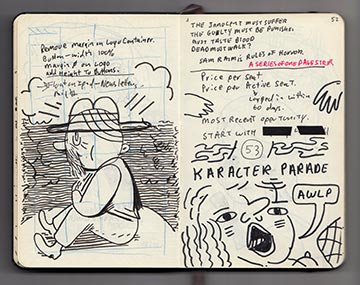 Remove margin on Logo Container.
Button - width: 100%
margin 0 on Logo
add Height to Buttons.
THE INNOCENT MUST SUFFER
52
THE GUILTY MUST BE PUNISHED.
MUST TASTE BLOOD
DEADMUSTWALK?
SAM RAIMI'S RULES OF HORROR.
A SERIES OF ONE PAGES TER
Price per Seat.
Price per Active Seat.
Logged in within
60 days.
MOST RECENT opportunity.
START WITH
53
KARACTER PARADE
AWLP